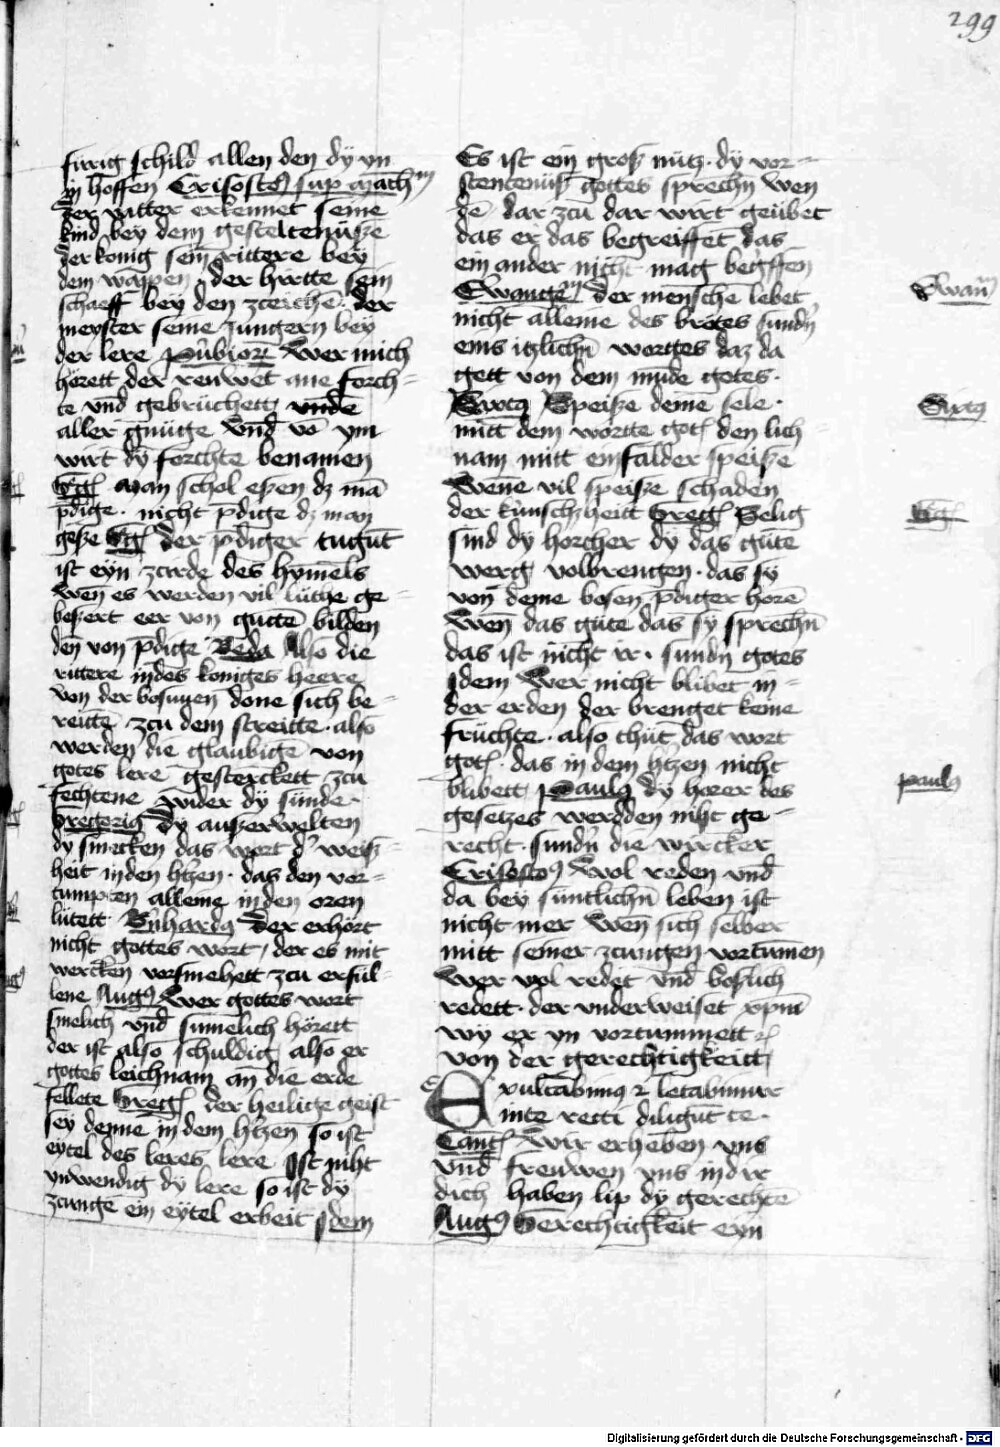 299
furig schild allen den dÿ yn
in hoffen Crisosto9 sup math
der vatter erkennet seine
kind bey dem gesteltenusze
der konig sein rittere bey
dem wapen · der hirtte sein
schaeff bey den zceiche · der
meyster seine Jungern bey
der lere Wer mich
hörett der renwet ane forch=
te vnd gebruchett vnde
aller gnuge vnd vō ym
wirt dÿ forchte benamen
Man schol eszen dz mā
p̄dige · nicht p̄dige dz man
gesze der p̄diger tugūt
ist eyn zcirde des hymels
wen es werden vil lüthe ge=
beszert eer von gutē bilden
den von p̄dige Beda Also die
rittere indes koniges heere
von der bosunen done sich be=
reitte zcu dem streitte · also
werden die glaubigē von
gotes lere gesterckett zcu
fechtene wider dÿ sünde ·
Gregorig dÿ auszerwelten
dÿ smecken das wort d' weisz=
heit inden htzen · das den vor=
tumpten alleine inden oren
lütett Bn̄hard9 der erhört
nicht gottes wort / der es mit
wercken vorsmehett zcu erful=
lene Aug9 Wer gottes wort
smelich vnd sumelich hörett
der ist also schuldig also er
gottes leichnam an die erde
fellete Greg der heilige geist
seÿ denne in dem htzen so ist
eytel des leres lere Ist niht
ynwendig dÿ lere so ist dÿ
zcunge ein eÿtel erbeit Idem
Es ist ein grosz nütz · dÿ vor=
stentenüsz gottes sprechn̄ wen
dē dar zcu dar wirt geübet
das er das begreiffet das
ein ander nicht mag begffen
Ewange der mensche lebet
nicht alleine des brotes sundn̄
eins itzlichn̄ worttes daz da
gett von dem müde gotes ·
Sixt9 Speisze deine sele ·
mitt dem wortte got den lich
nam mitt einfalder speisze
Wene vil speisze schaden
der kunschheitt Greg Selig
sind dÿ horcher dÿ das güte
werg volbrengen · das sÿ
von deme bosen p̄diger horē
Wen das güte das sÿ sprechn̄
das ist nicht ir · sundn̄ gotes
Idem Wer nicht blibet in=
der erden der brenget keine
früchte · also thüt das wort
got · das in dem htzen nicht
blibett Paul9 dÿ hörer des
gesetzes werdden niht ge=
recht · sundn̄ die wircker
Crisosto9 Wol reden vnd
da bey süntlichn̄ leben ist
nicht mer wen sich selber
mitt seiner zcungen vortumen
Wer wol redet vnd boslich
redett · der vnderweiset xpm̄
wÿ er yn vortummett
von der gerechtigkeitt
Exultabim9 et letabimur
inte recti diligūt te ·
Cant Wir erheben vns
vnd freuwen vns in dir
dich haben lip dÿ gerechtē
Aug9 Gerechtigkeit eyn
Ewan
Sixt9
Paul9
Digitalisierung gefördert durch die Deutsche Forschungsgemeinschaft - DFG